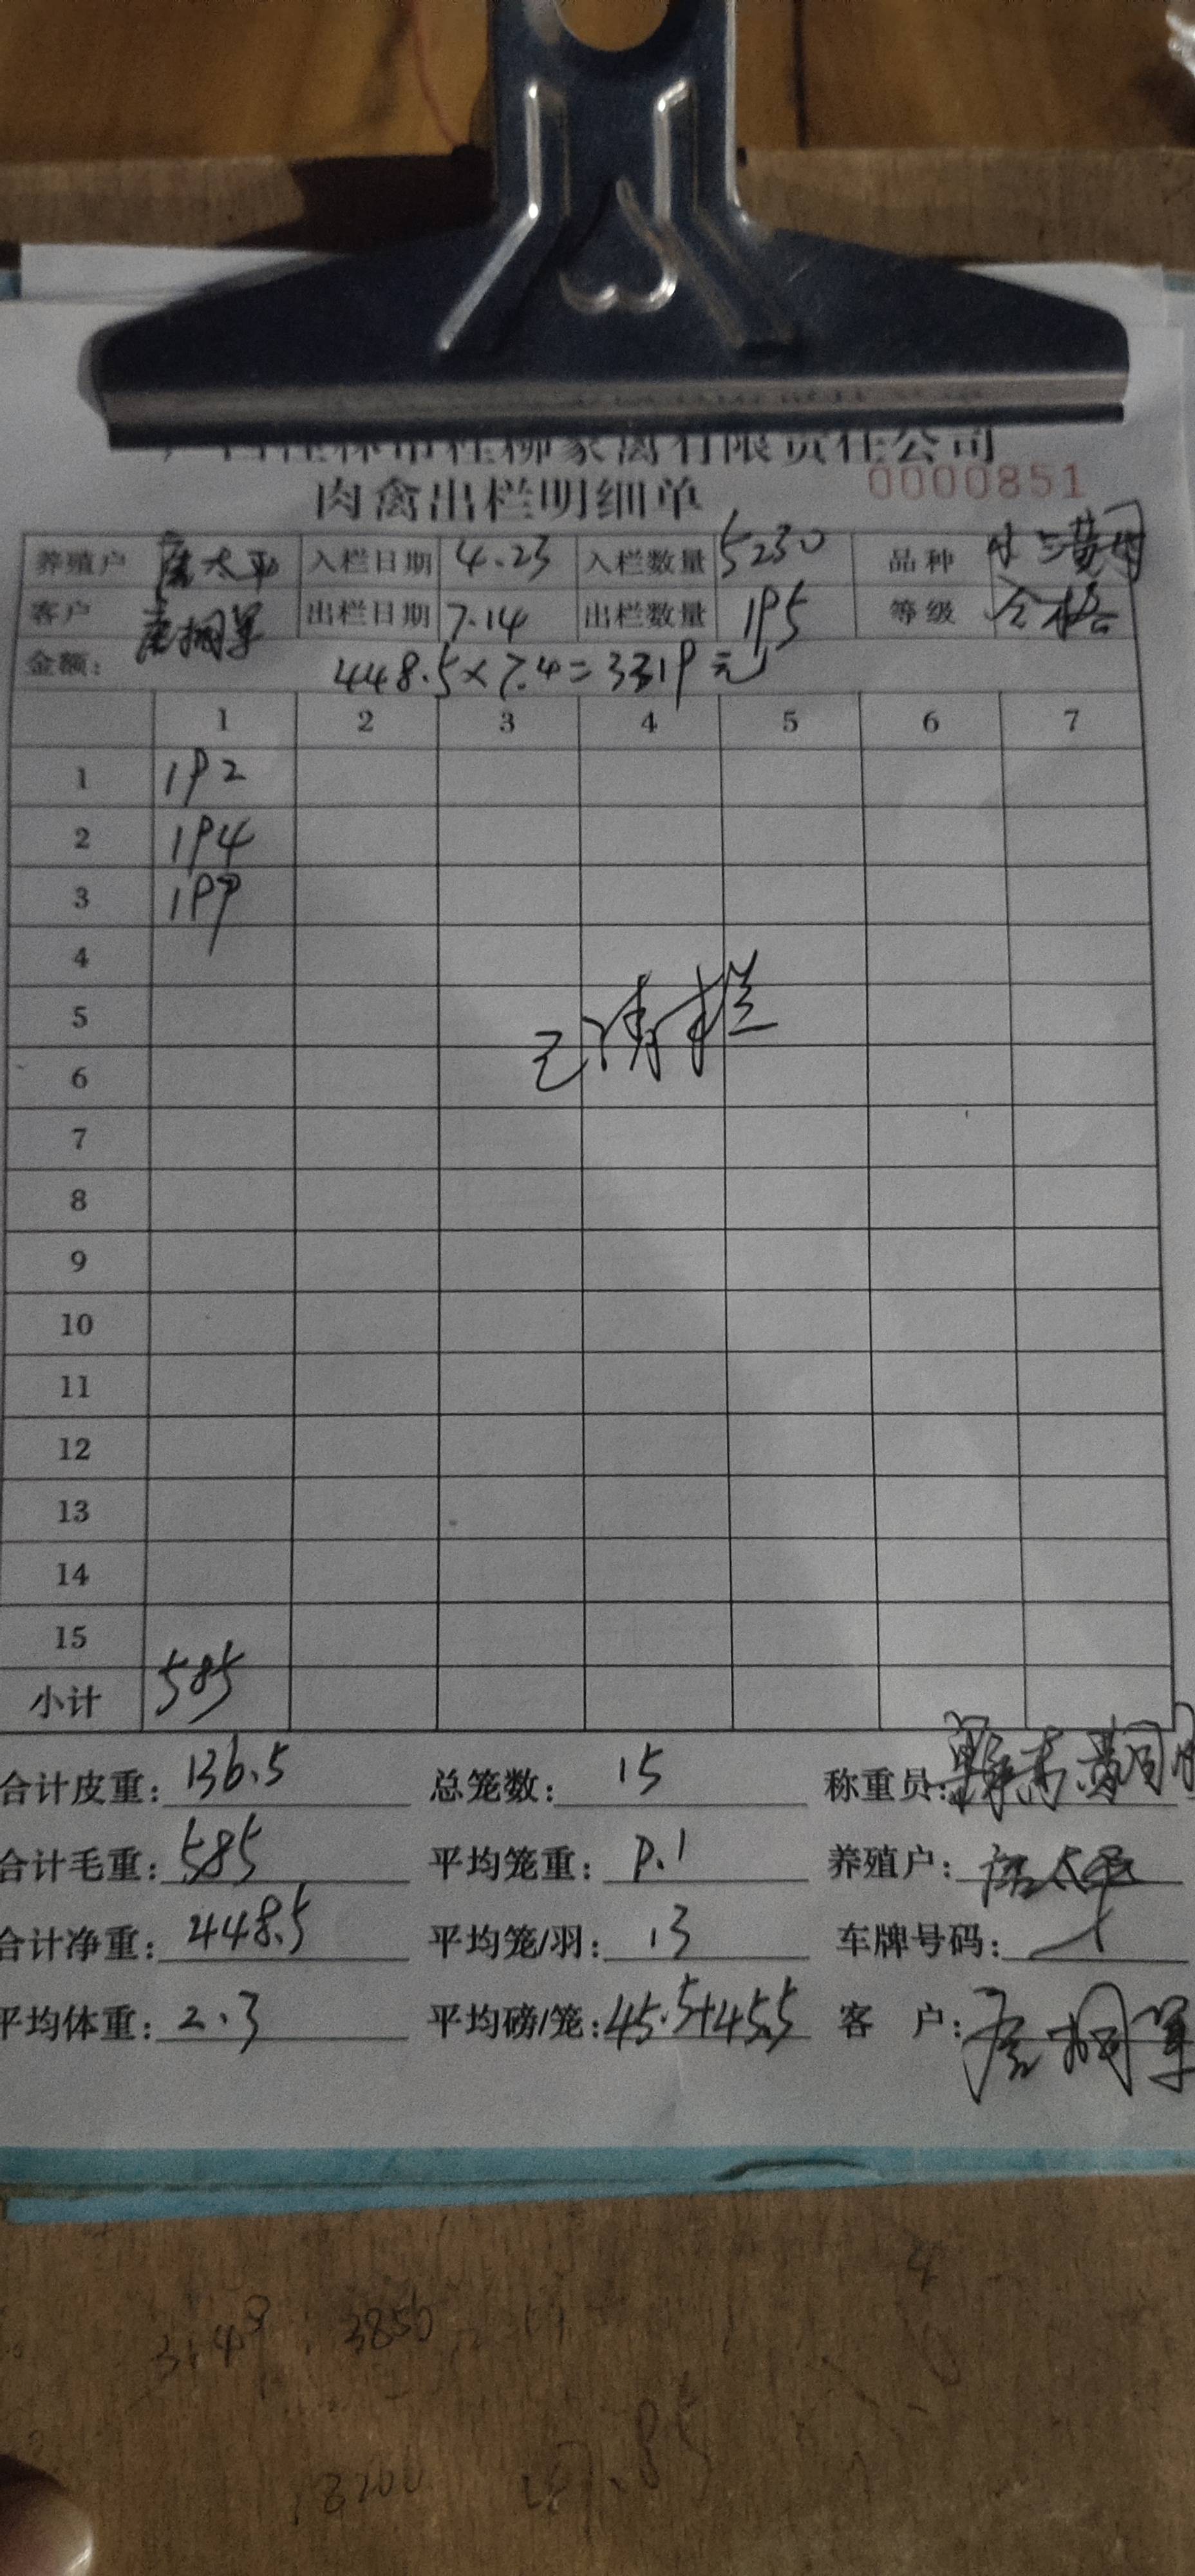 广西桂林市桂柳家禽有限责任公司
肉禽出栏明细单 0000851
养殖户 唐太平 入栏日期 4.23 入栏数量 5230 品种
客户 唐拥军 出栏日期 7.14 出栏数量 195 等级 合格
金额: 448.5×7.4=3319元
1 2 3 4 5 6 7
1 192
2 194
3 199
4
5
已清栏
6
7
8
9
10
11
12
13
14
15
小计 585
合计皮重: 136.5 总笼数: 15 称重员:
合计毛重: 585 平均笼重: 9.1 养殖户: 唐太平
合计净重: 448.5 平均笼/羽: 13 车牌号码:
平均体重: 2.3 平均磅/笼: 45.5+45.5 客 户: 唐拥军
3850
3200